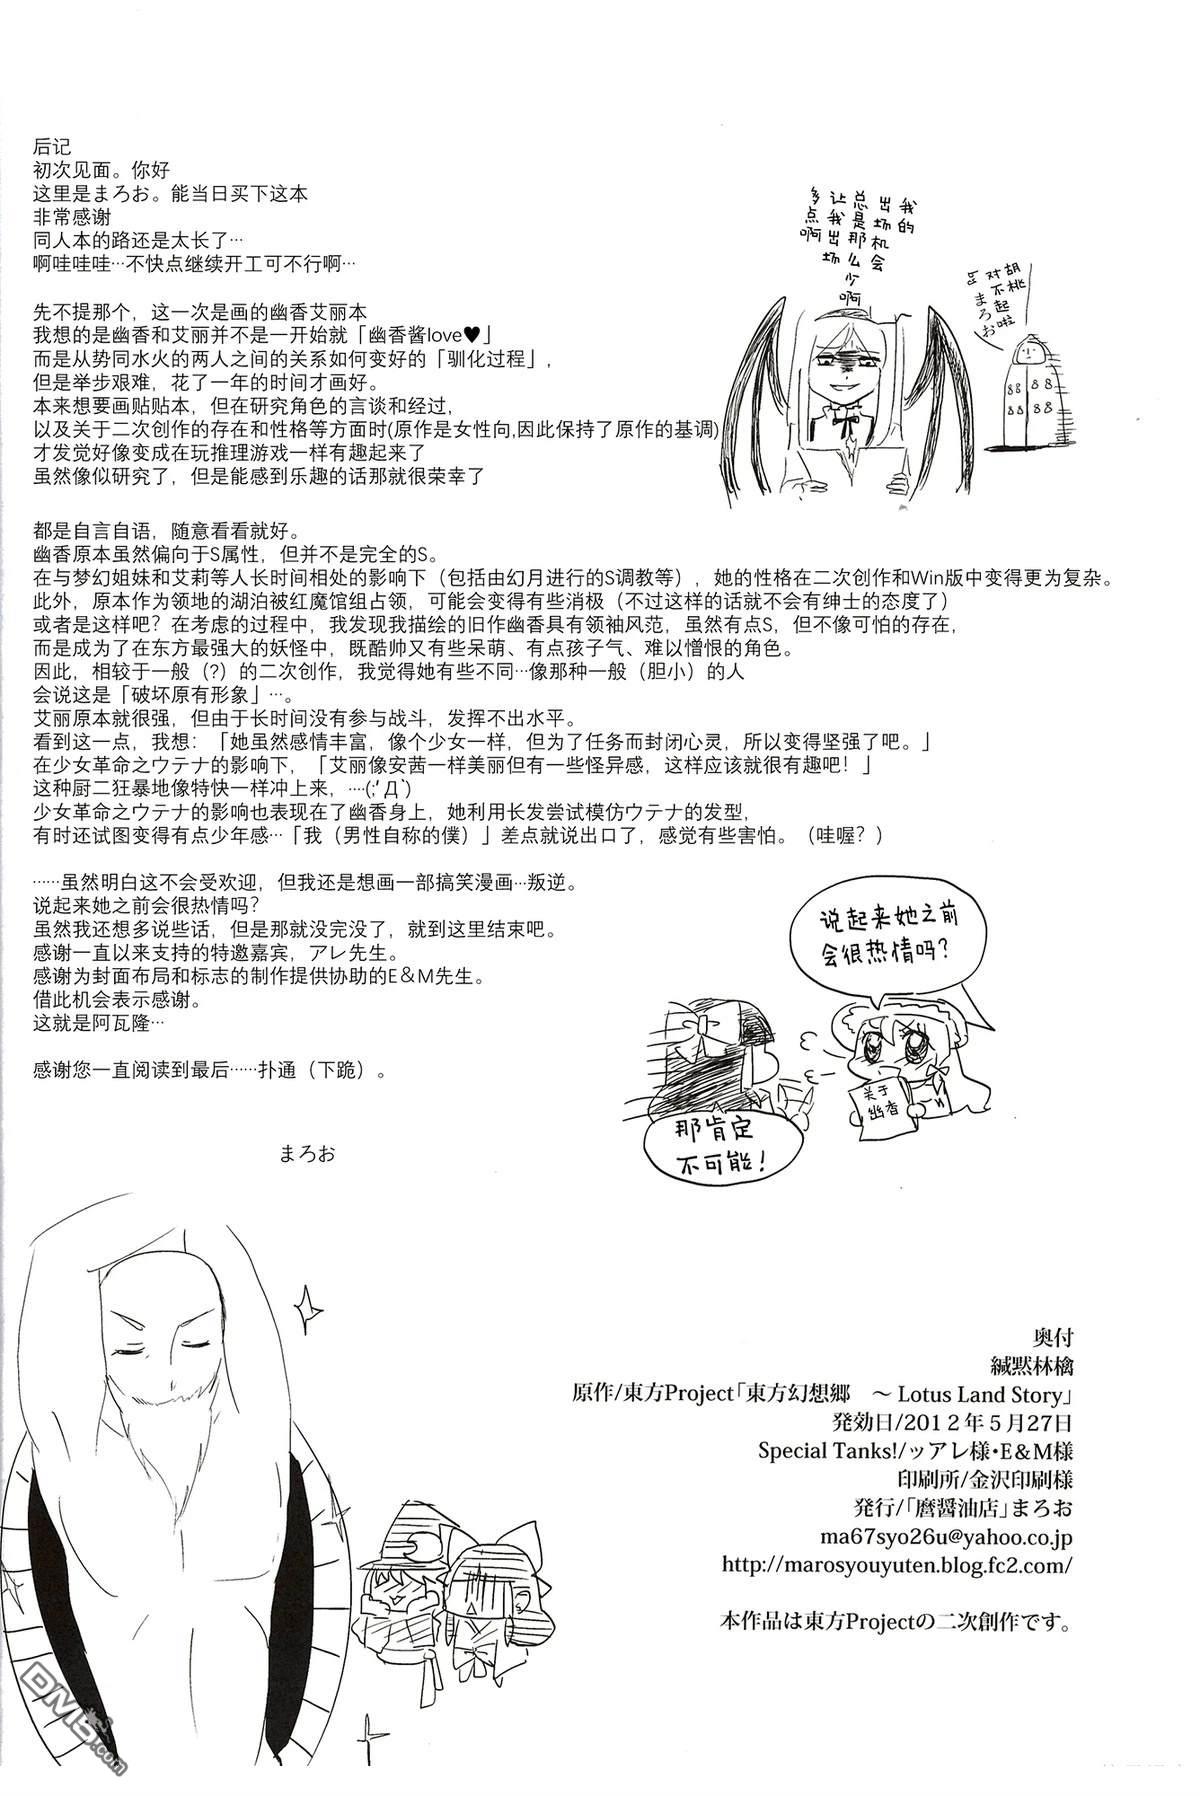 后记
初次见面。你好
这里是まろお。能当日买下这本
非常感谢
同人本的路还是太长了…
啊哇哇哇…不快点继续开工可不行啊…
先不提那个，这一次是画的幽香艾丽本
我想的是幽香和艾丽并不是一开始就「幽香酱love♥」
而是从势同水火的两人之间的关系如何变好的「驯化过程」，
但是举步艰难，花了一年的时间才画好。
本来想要画贴贴本，但在研究角色的言谈和经过，
以及关于二次创作的存在和性格等方面时(原作是女性向,因此保持了原作的基调)
才发觉好像变成在玩推理游戏一样有趣起来了
虽然像似研究了，但是能感到乐趣的话那就很荣幸了
都是自言自语，随意看看就好。
幽香原本虽然偏向于S属性，但并不是完全的S。
在与梦幻姐妹和艾莉等人长时间相处的影响下（包括由幻月进行的S调教等），她的性格在二次创作和Win版中变得更为复杂。
此外，原本作为领地的湖泊被红魔馆组占领，可能会变得有些消极（不过这样的话就不会有绅士的态度了）
或者是这样吧？在考虑的过程中，我发现我描绘的旧作幽香具有领袖风范，虽然有点S，但不像可怕的存在，
而是成为了在东方最强大的妖怪中，既酷帅又有些呆萌、有点孩子气、难以憎恨的角色。
因此，相较于一般（?）的二次创作，我觉得她有些不同…像那种一般（胆小）的人
会说这是「破坏原有形象」…。
艾丽原本就很强，但由于长时间没有参与战斗，发挥不出水平。
看到这一点，我想：「她虽然感情丰富，像个少女一样，但为了任务而封闭心灵，所以变得坚强了吧。」
在少女革命之ウテナ的影响下，「艾丽像安茜一样美丽但有一些怪异感，这样应该就很有趣吧！」
这种厨二狂暴地像特快一样冲上来，…·(;´Д`)
少女革命之ウテナ的影响也表现在了幽香身上，她利用长发尝试模仿ウテナ的发型，
有时还试图变得有点少年感…「我（男性自称的僕）」差点就说出口了，感觉有些害怕。（哇喔？）
……虽然明白这不会受欢迎，但我还是想画一部搞笑漫画…叛逆。
说起来她之前会很热情吗？
虽然我还想多说些话，但是那就没完没了，就到这里结束吧。
感谢一直以来支持的特邀嘉宾，アレ先生。
感谢为封面布局和标志的制作提供协助的E＆M先生。
借此机会表示感谢。
这就是阿瓦隆…
感谢您一直阅读到最后……扑通（下跪）。
まろお
我的
出场机会
总是那么少啊
让我出场
多点啊
胡桃
对不起啦
by まろお
说起来她之前
会很热情吗?
关于
幽香
那肯定
不可能!
奥付
緘黙林檎
原作/東方Project「東方幻想郷　～ Lotus Land Story」
発効日/2012年５月27日
Special Tanks!/ッアレ様・E＆M様
印刷所/金沢印刷様
発行/「麿醤油店」まろお
ma67syo26u@yahoo.co.jp
http://marosyouyuten.blog.fc2.com/
本作品は東方Projectの二次創作です。
DM5.com